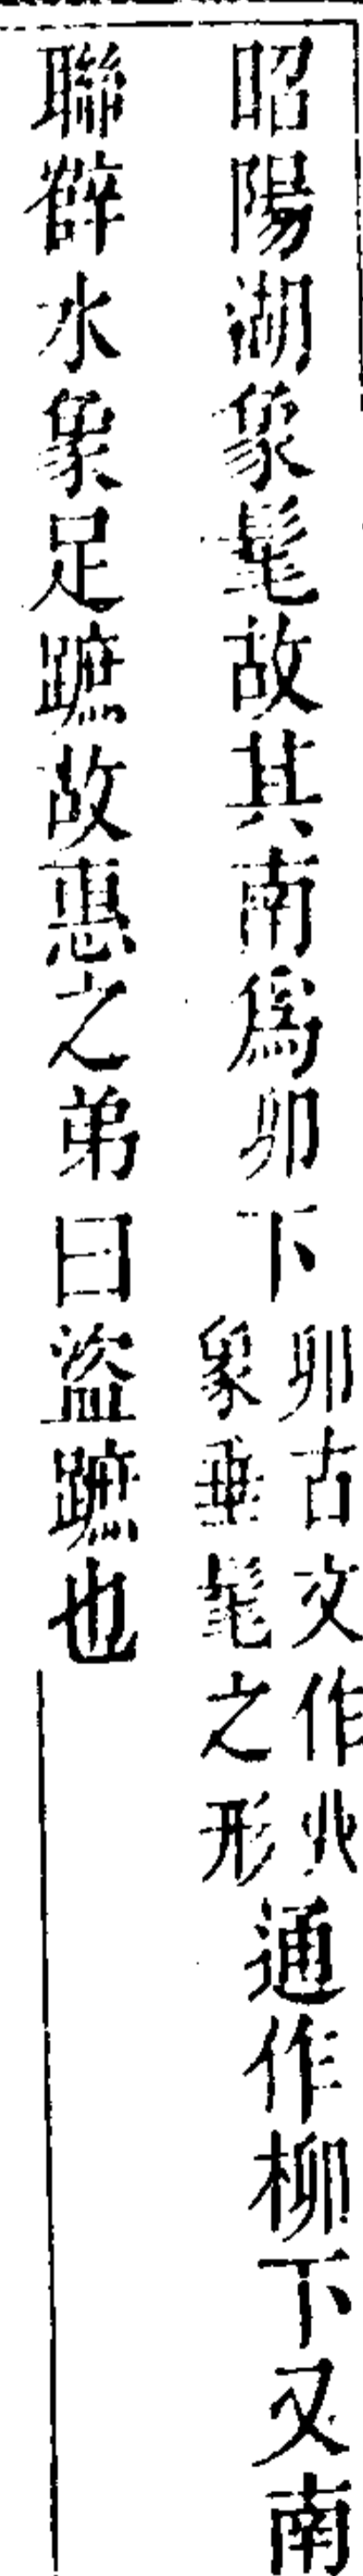 昭陽湖象髦故其南爲卯下
卯古文作𠁥
象垂髦之形
通作柳下又南
聯辥水象足蹠故惠之弟曰盜蹠也